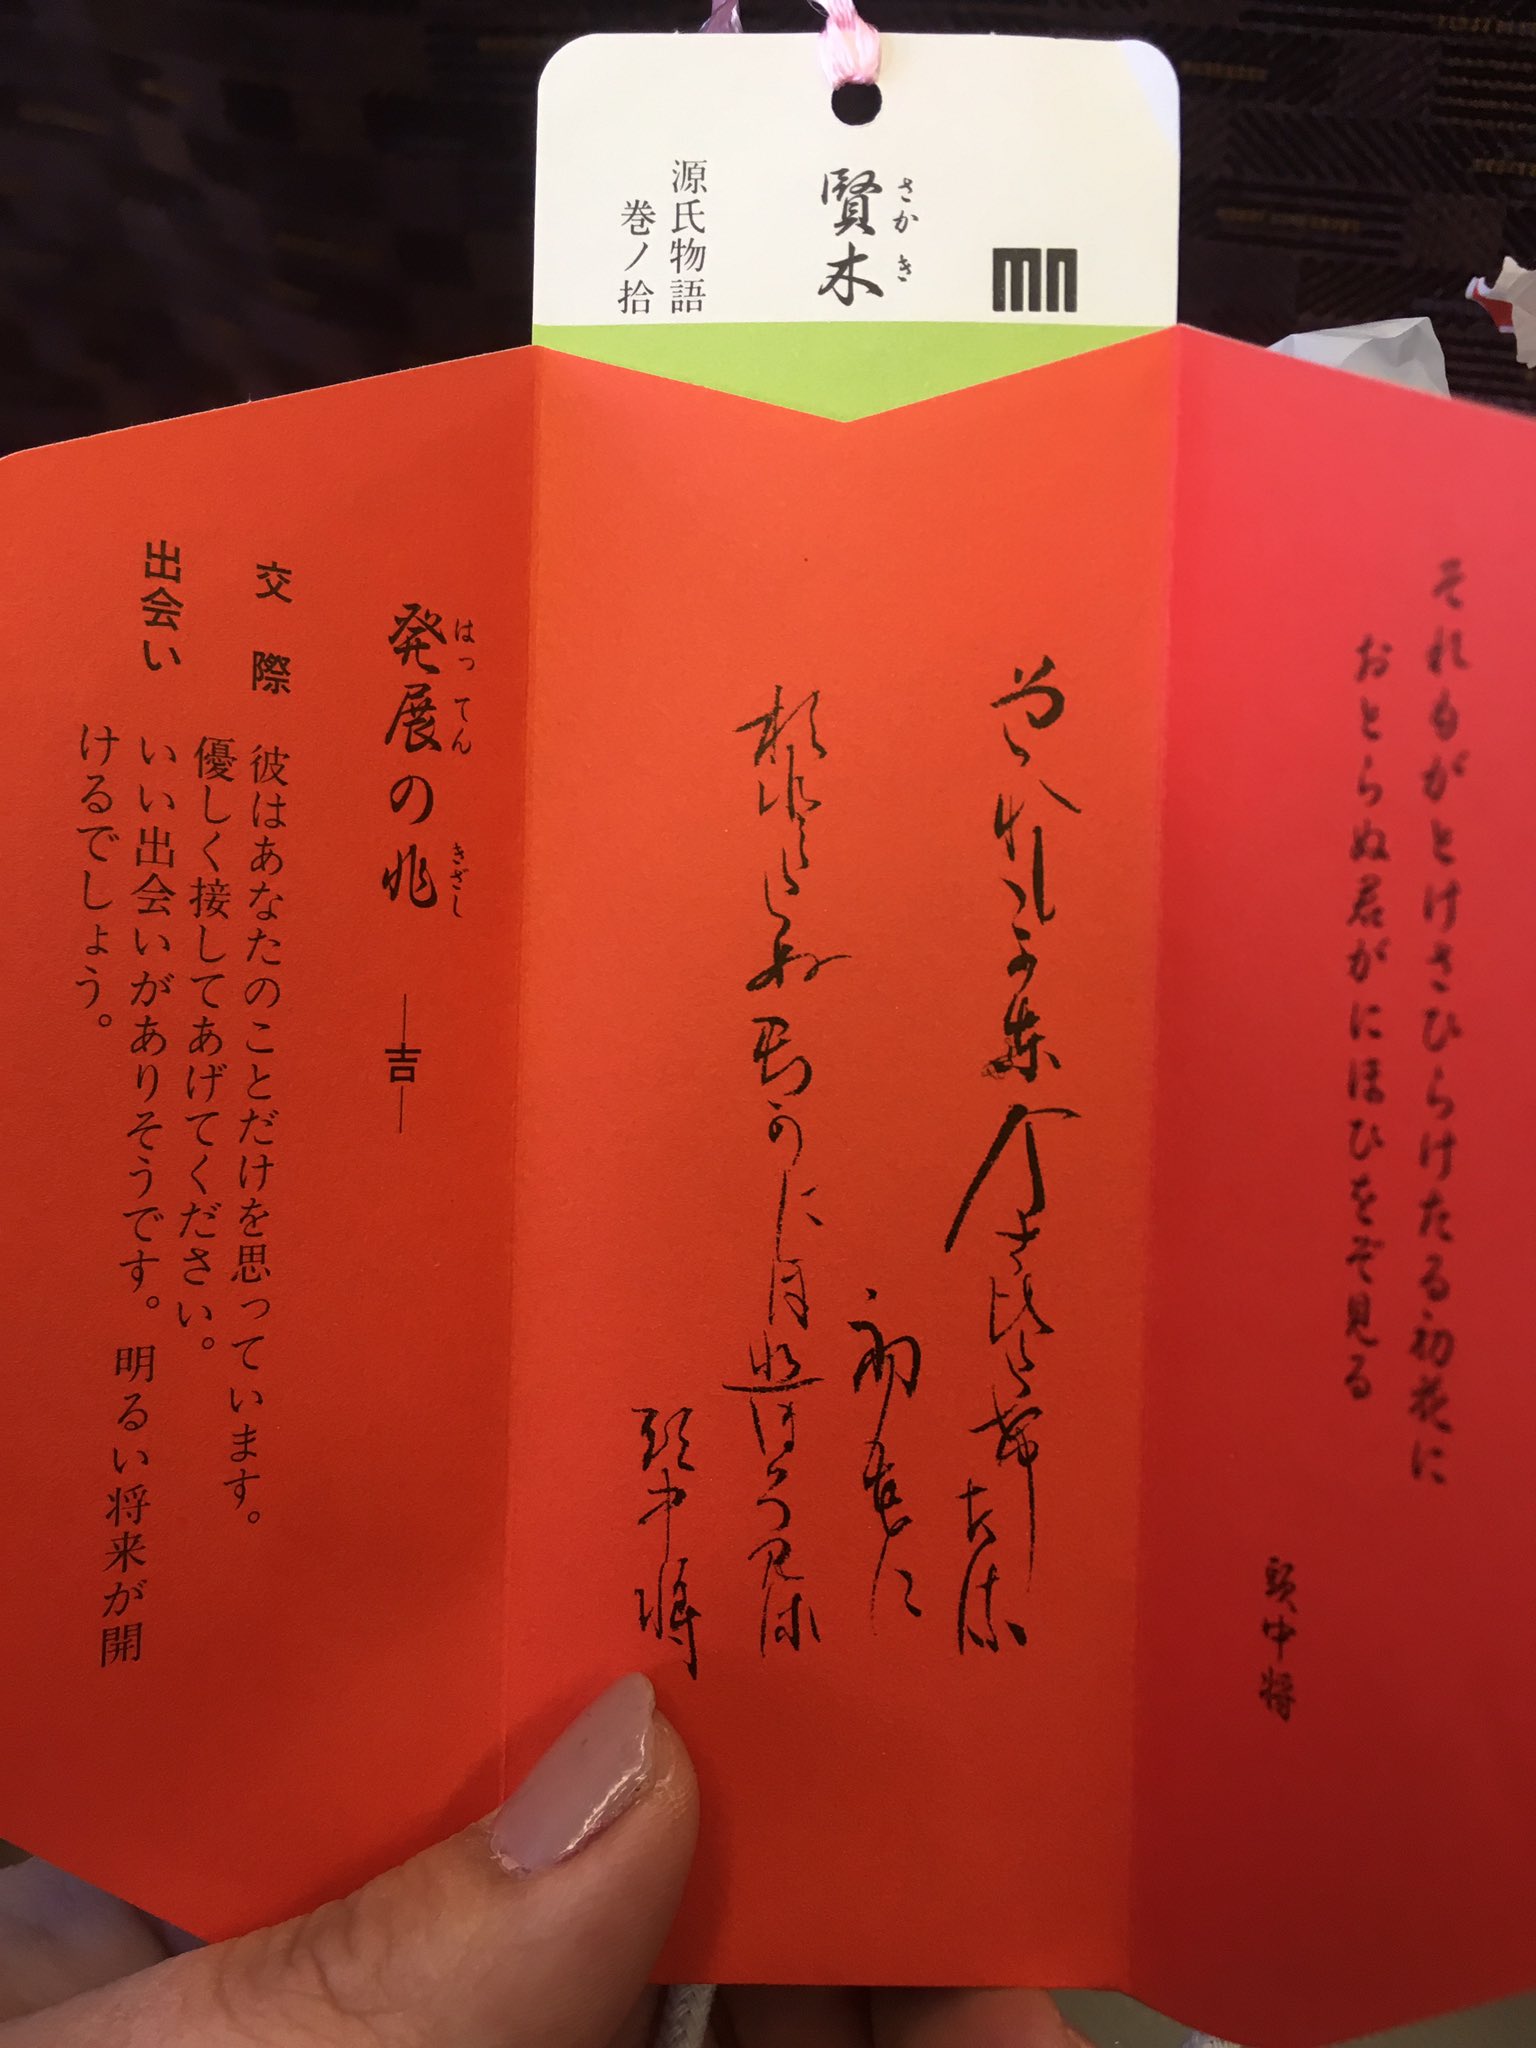 賢木
さかき
源氏物語
巻ノ拾
それもがとけさひらけたる初花に
おとらぬ君がにほひをぞ見る
頭中将
初花に
頭中将
発展の兆
はってん きざし
吉
交際
彼はあなたのことだけを思っています。
優しく接してあげてください。
出会い
いい出会いがありそうです。明るい将来が開
けるでしょう。